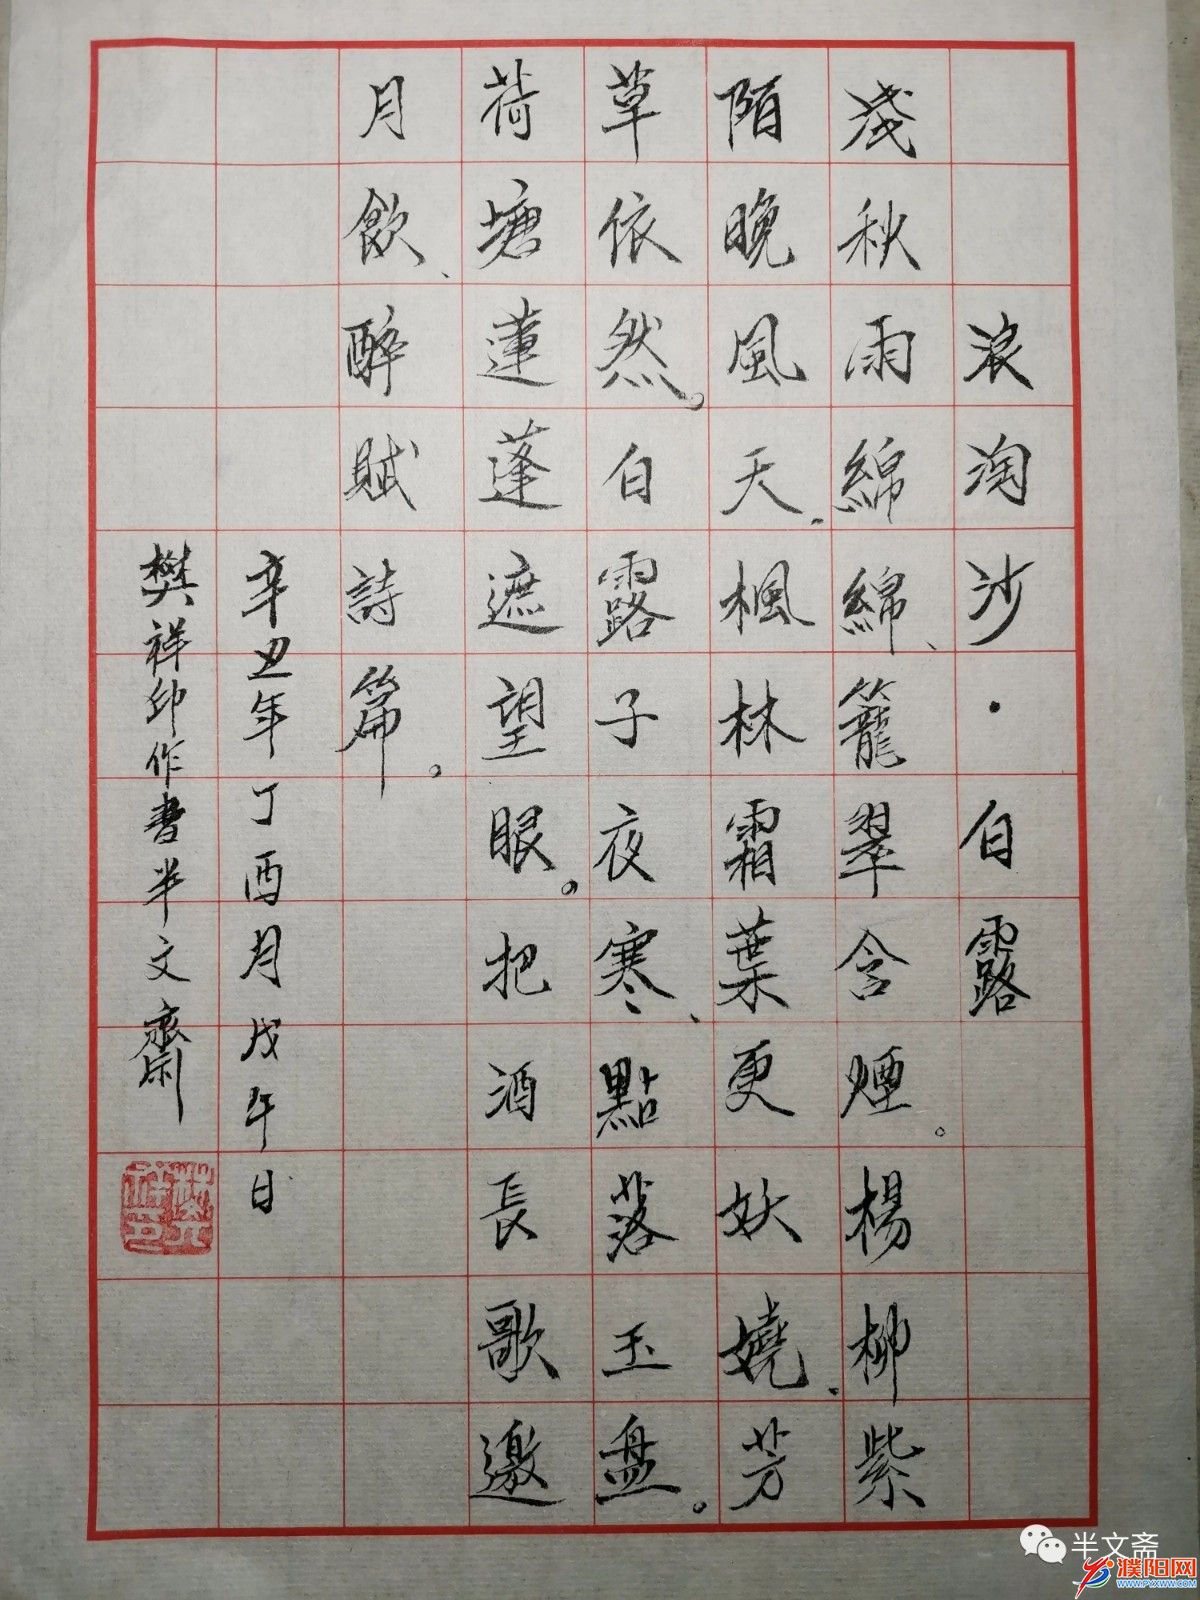 浪淘沙·白露
淺秋雨綿綿、籠翠含煙。楊柳紫
陌晚風天，楓林霜葉更妖嬈、芳
草依然。白露子夜寒、點落玉盘。
荷塘蓮蓬遮望眼。把酒長歌邀
月飲、醉賦詩篇。
辛丑年丁酉月戊午日
樊祥印作書半文齋
半文斋
濮阳网
WWW.PYXWW.COM